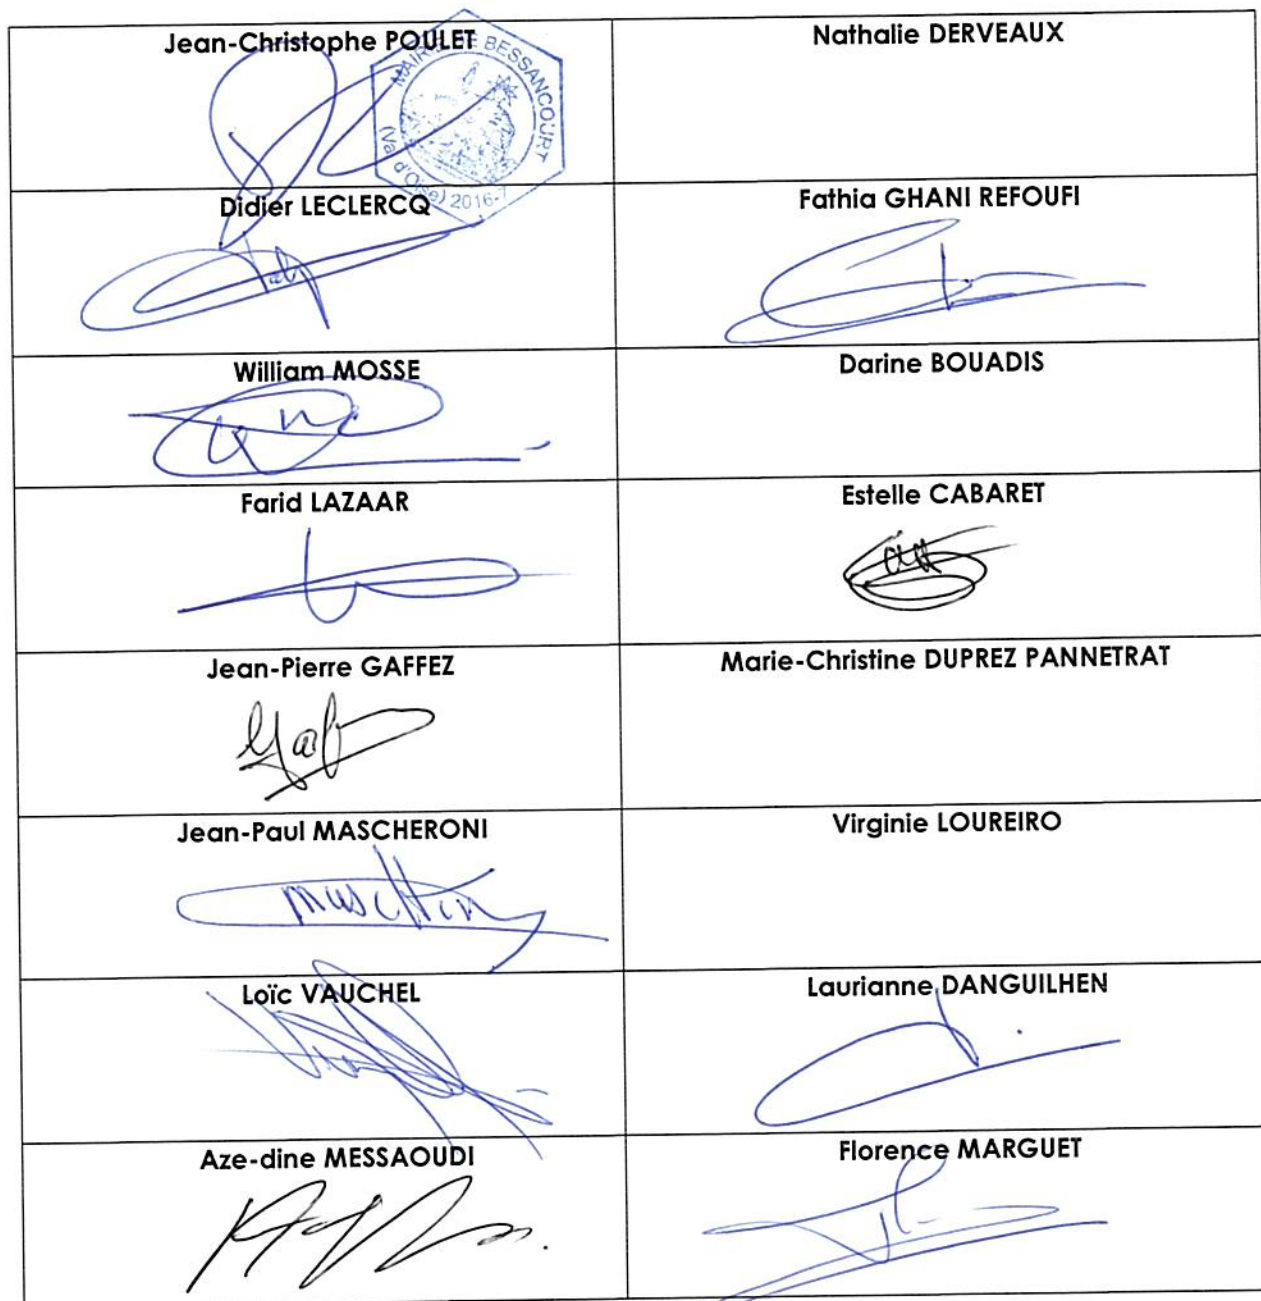 Jean-Christophe POULET
MAIRIE DE BESSANCOURT
(Val d'Oise) 2016-
Nathalie DERVEAUX
Didier LECLERCQ
Fathia GHANI REFOUFI
William MOSSE
Darine BOUADIS
Farid LAZAAR
Estelle CABARET
Jean-Pierre GAFFEZ
Marie-Christine DUPREZ PANNETRAT
Jean-Paul MASCHERONI
Virginie LOUREIRO
Loïc VAUCHEL
Laurianne DANGUILHEN
Aze-dine MESSAOUDI
Florence MARGUET